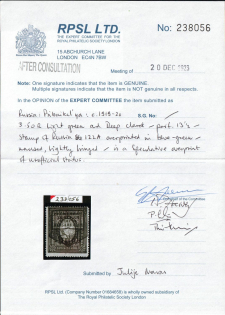 RPSL LTD.
THE EXPERT COMMITTEE OF THE
ROYAL PHILATELIC SOCIETY LONDON
No: 238056
15 ABCHURCH LANE
LONDON EC4N 7BW
AFTER CONSULTATION
Meeting of 20 DEC
Note: One signature indicates that the item is GENUINE
Multiple signatures indicate that the item is NOT genuine in all respects.
In the OPINION of the EXPERT COMMITTEE the item submitted as
Russia: c. 1918-20 S.G. No:
3.50R Light green and Deep - perf. 13½ -
stamp of Russia No 122A overprinted in blue-green -
mounted, lightly hinged - is a Speculative overprint
of unofficial status.
238056
Submitted by
RPSL Ltd. (Company Number 01604658) is wholly owned subsidiary of
The Royal Philatelic Society London